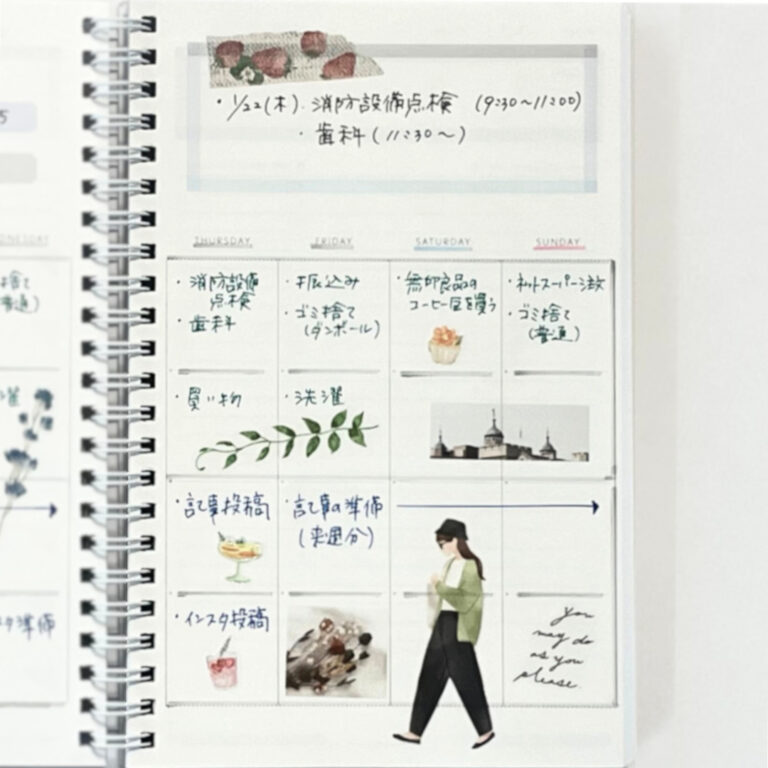 ・1/22(木). 消防設備点検 (9:30〜11:00)
・歯科 (11:30〜)
THURSDAY
FRIDAY
SATURDAY
SUNDAY
・消防設備
点検
・歯科
・振込み
・ゴミ捨て
(ダンボール)
・無印良品の
コーヒー豆を買う
・ネットスーパー注文
・ゴミ捨て
(普通)
・買い物
・洗濯
・記事投稿
・記事の準備
(来週分)
・インスタ投稿
you
may do
as you
please.